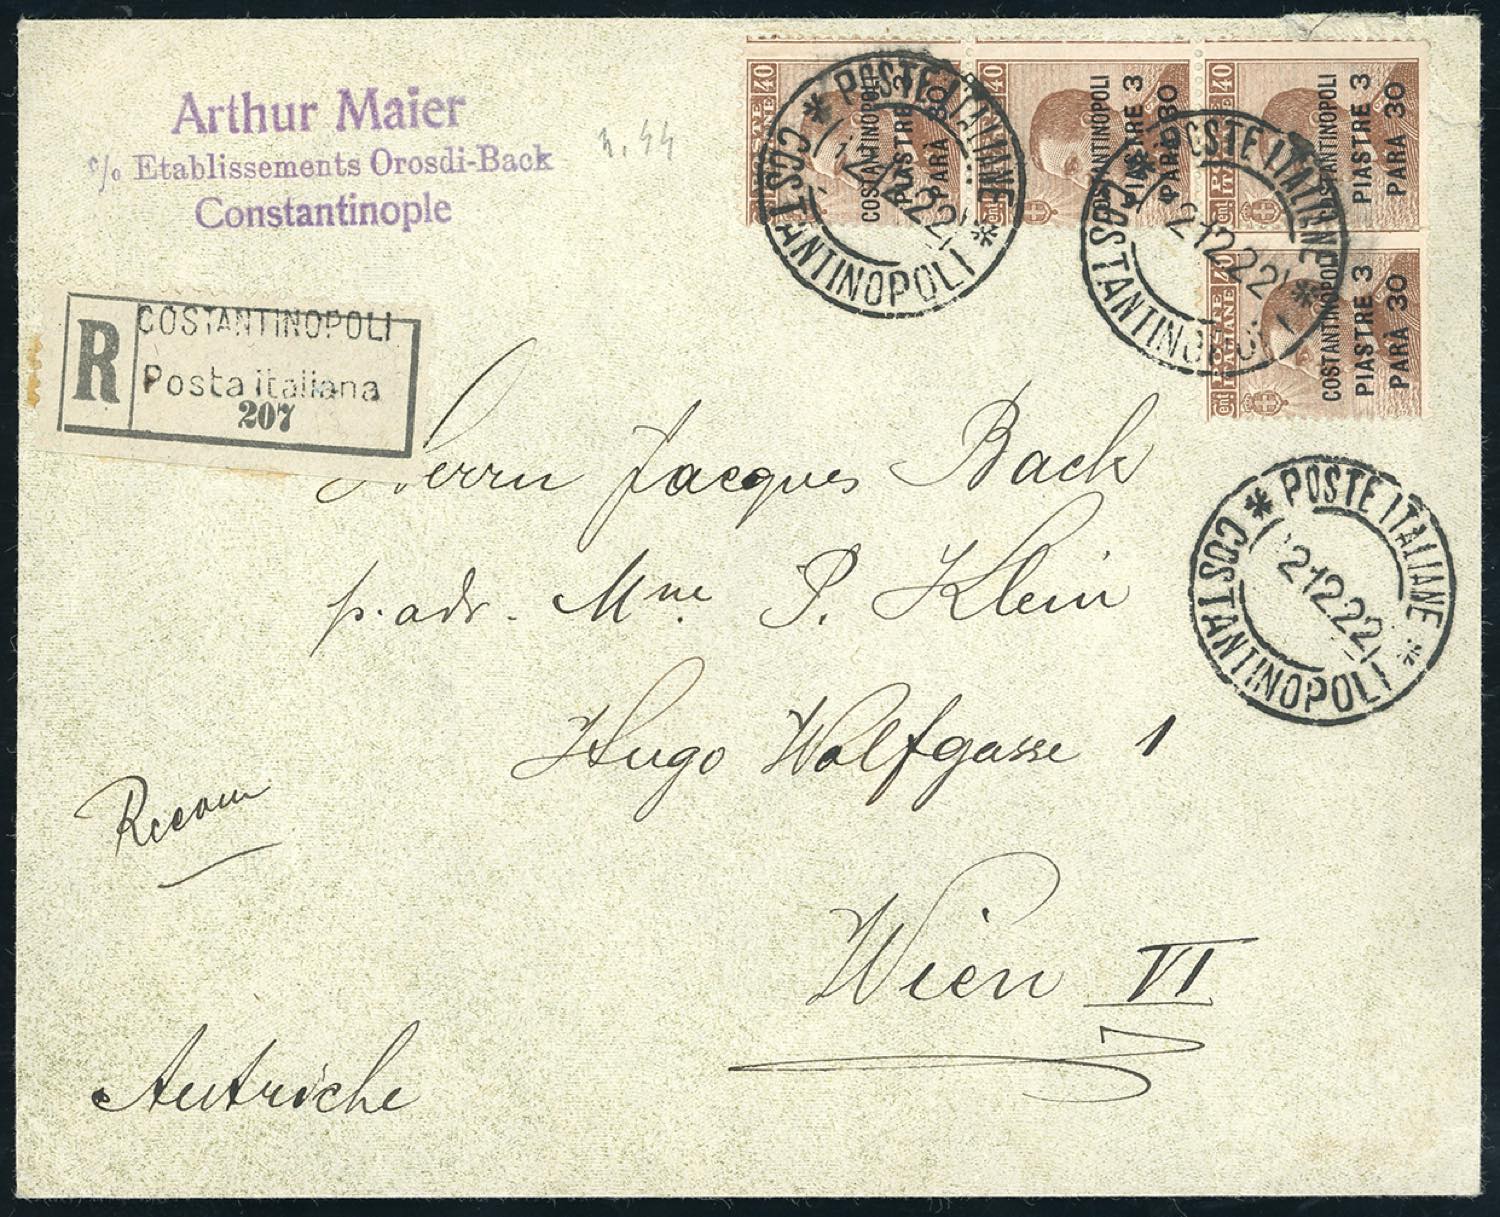 Arthur Maier
c/o Etablissements Orosdi-Back
Constantinople
n. 44
R
COSTANTINOPOLI
Posta italiana
207
40
COSTANTINOPOLI
PIASTRE 3
PARÀ 30
40
COSTANTINOPOLI
PIASTRE 3
PARÀ 30
POSTE ITALIANE
40
COSTANTINOPOLI
PIASTRE 3
PARÀ 30
POSTE ITALIANE
cent 40
COSTANTINOPOLI
PIASTRE 3
PARÀ 30
* POSTE ITALIANE * COSTANTINOPOLI
2·12.22
* POSTE ITALIANE * COSTANTINOPOLI
2·12.22
* POSTE ITALIANE * COSTANTINOPOLI
2·12.22
Herrn Jacques Back
p. adr. Mme. P. Klein
Hugo Wolfgasse 1
Recom
Wien VI
Autriche